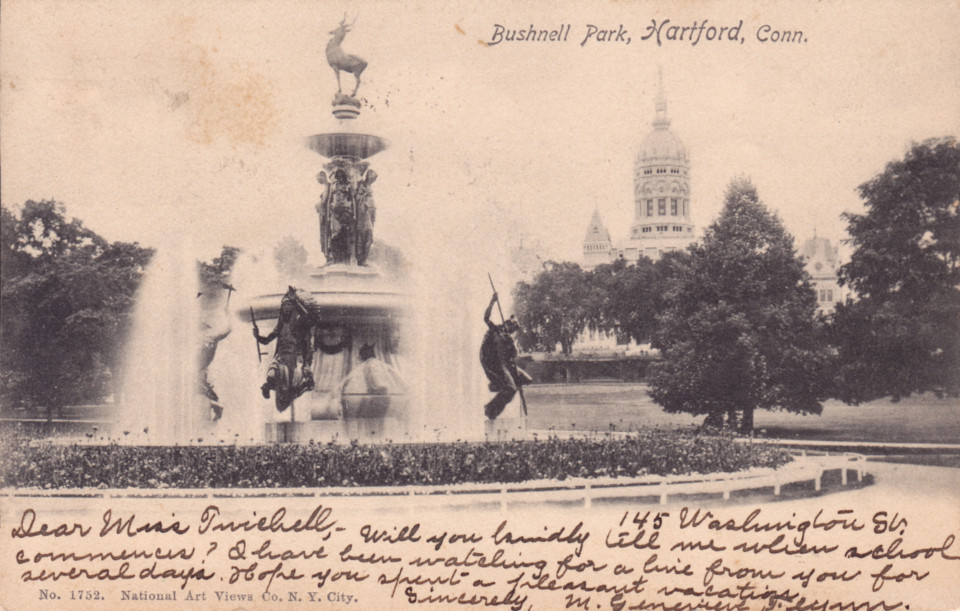 Bushnell Park, Hartford, Conn.
145 Washington St.
Dear Miss Twichell,- Will you kindly tell me when school
commences? I have been watching for a line from you for
several days. Hope you spent a pleasant vacation.
Sincerely, M. Genevieve Flynn.
No. 1752. National Art Views Co. N. Y. City.